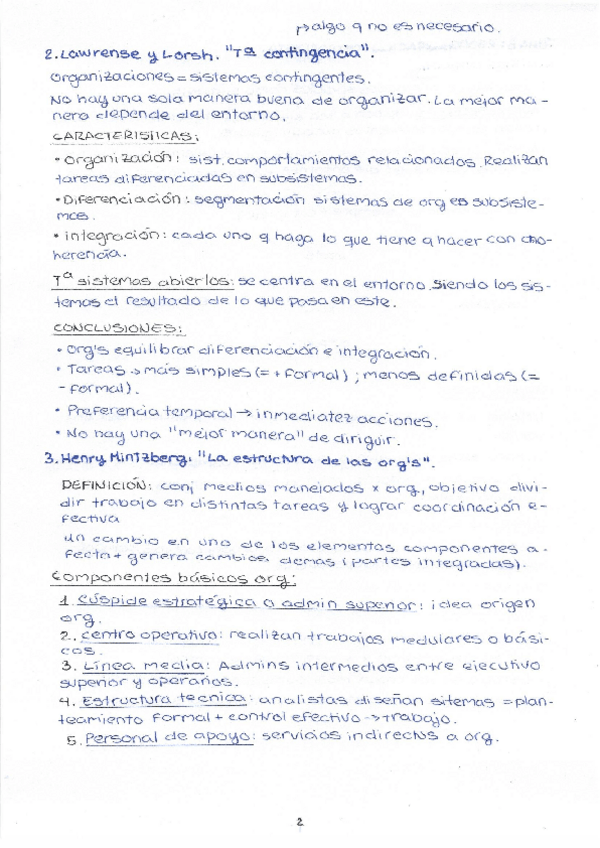 ↳ algo q no es necesario.
2. Lawrense y Lorsh. "Tª contingencia".
Organizaciones = sistemas contingentes.
No hay una sola manera buena de organizar. La mejor ma-
nera depende del entorno.
CARACTERISTICAS:
• Organización: sist. comportamientos relacionados. Realizan
tareas diferenciadas en subsistemas.
• Diferenciación: segmentación sistemas de org en subsiste-
mas.
• integración: cada uno q haga lo que tiene q hacer con cho-
herencia.
Tª sistemas abiertos: se centra en el entorno. Siendo los sis-
temas el resultado de lo que pasa en este.
CONCLUSIONES:
• Org's equilibrar diferenciación e integración.
• Tareas → más simples (= + formal); menos definidas (=
- formal).
• Preferencia temporal → inmediatez acciones.
• No hay una "mejor manera" de diriguir.
3. Henry Mintzberg. "La estructura de las org's".
DEFINICIÓN: conj medios manejados x org., objetivo divi-
dir trabajo en distintas tareas y lograr coordinación e-
fectiva
un cambio en uno de los elementos componentes a-
fecta + genera cambios demas (partes integradas).
Componentes básicos org:
1. Cúspide estratégica o admin superior: idea origen
org.
2. centro operativo: realizan trabajos medulares o bási-
cos.
3. Línea media: Admins intermedios entre ejecutivo
superior y operarios.
4. Estructura tecnica: analistas diseñan sitemas = plan-
teamiento formal + control efectivo → trabajo.
5. Personal de apoyo: servicios indirectos a org.
2